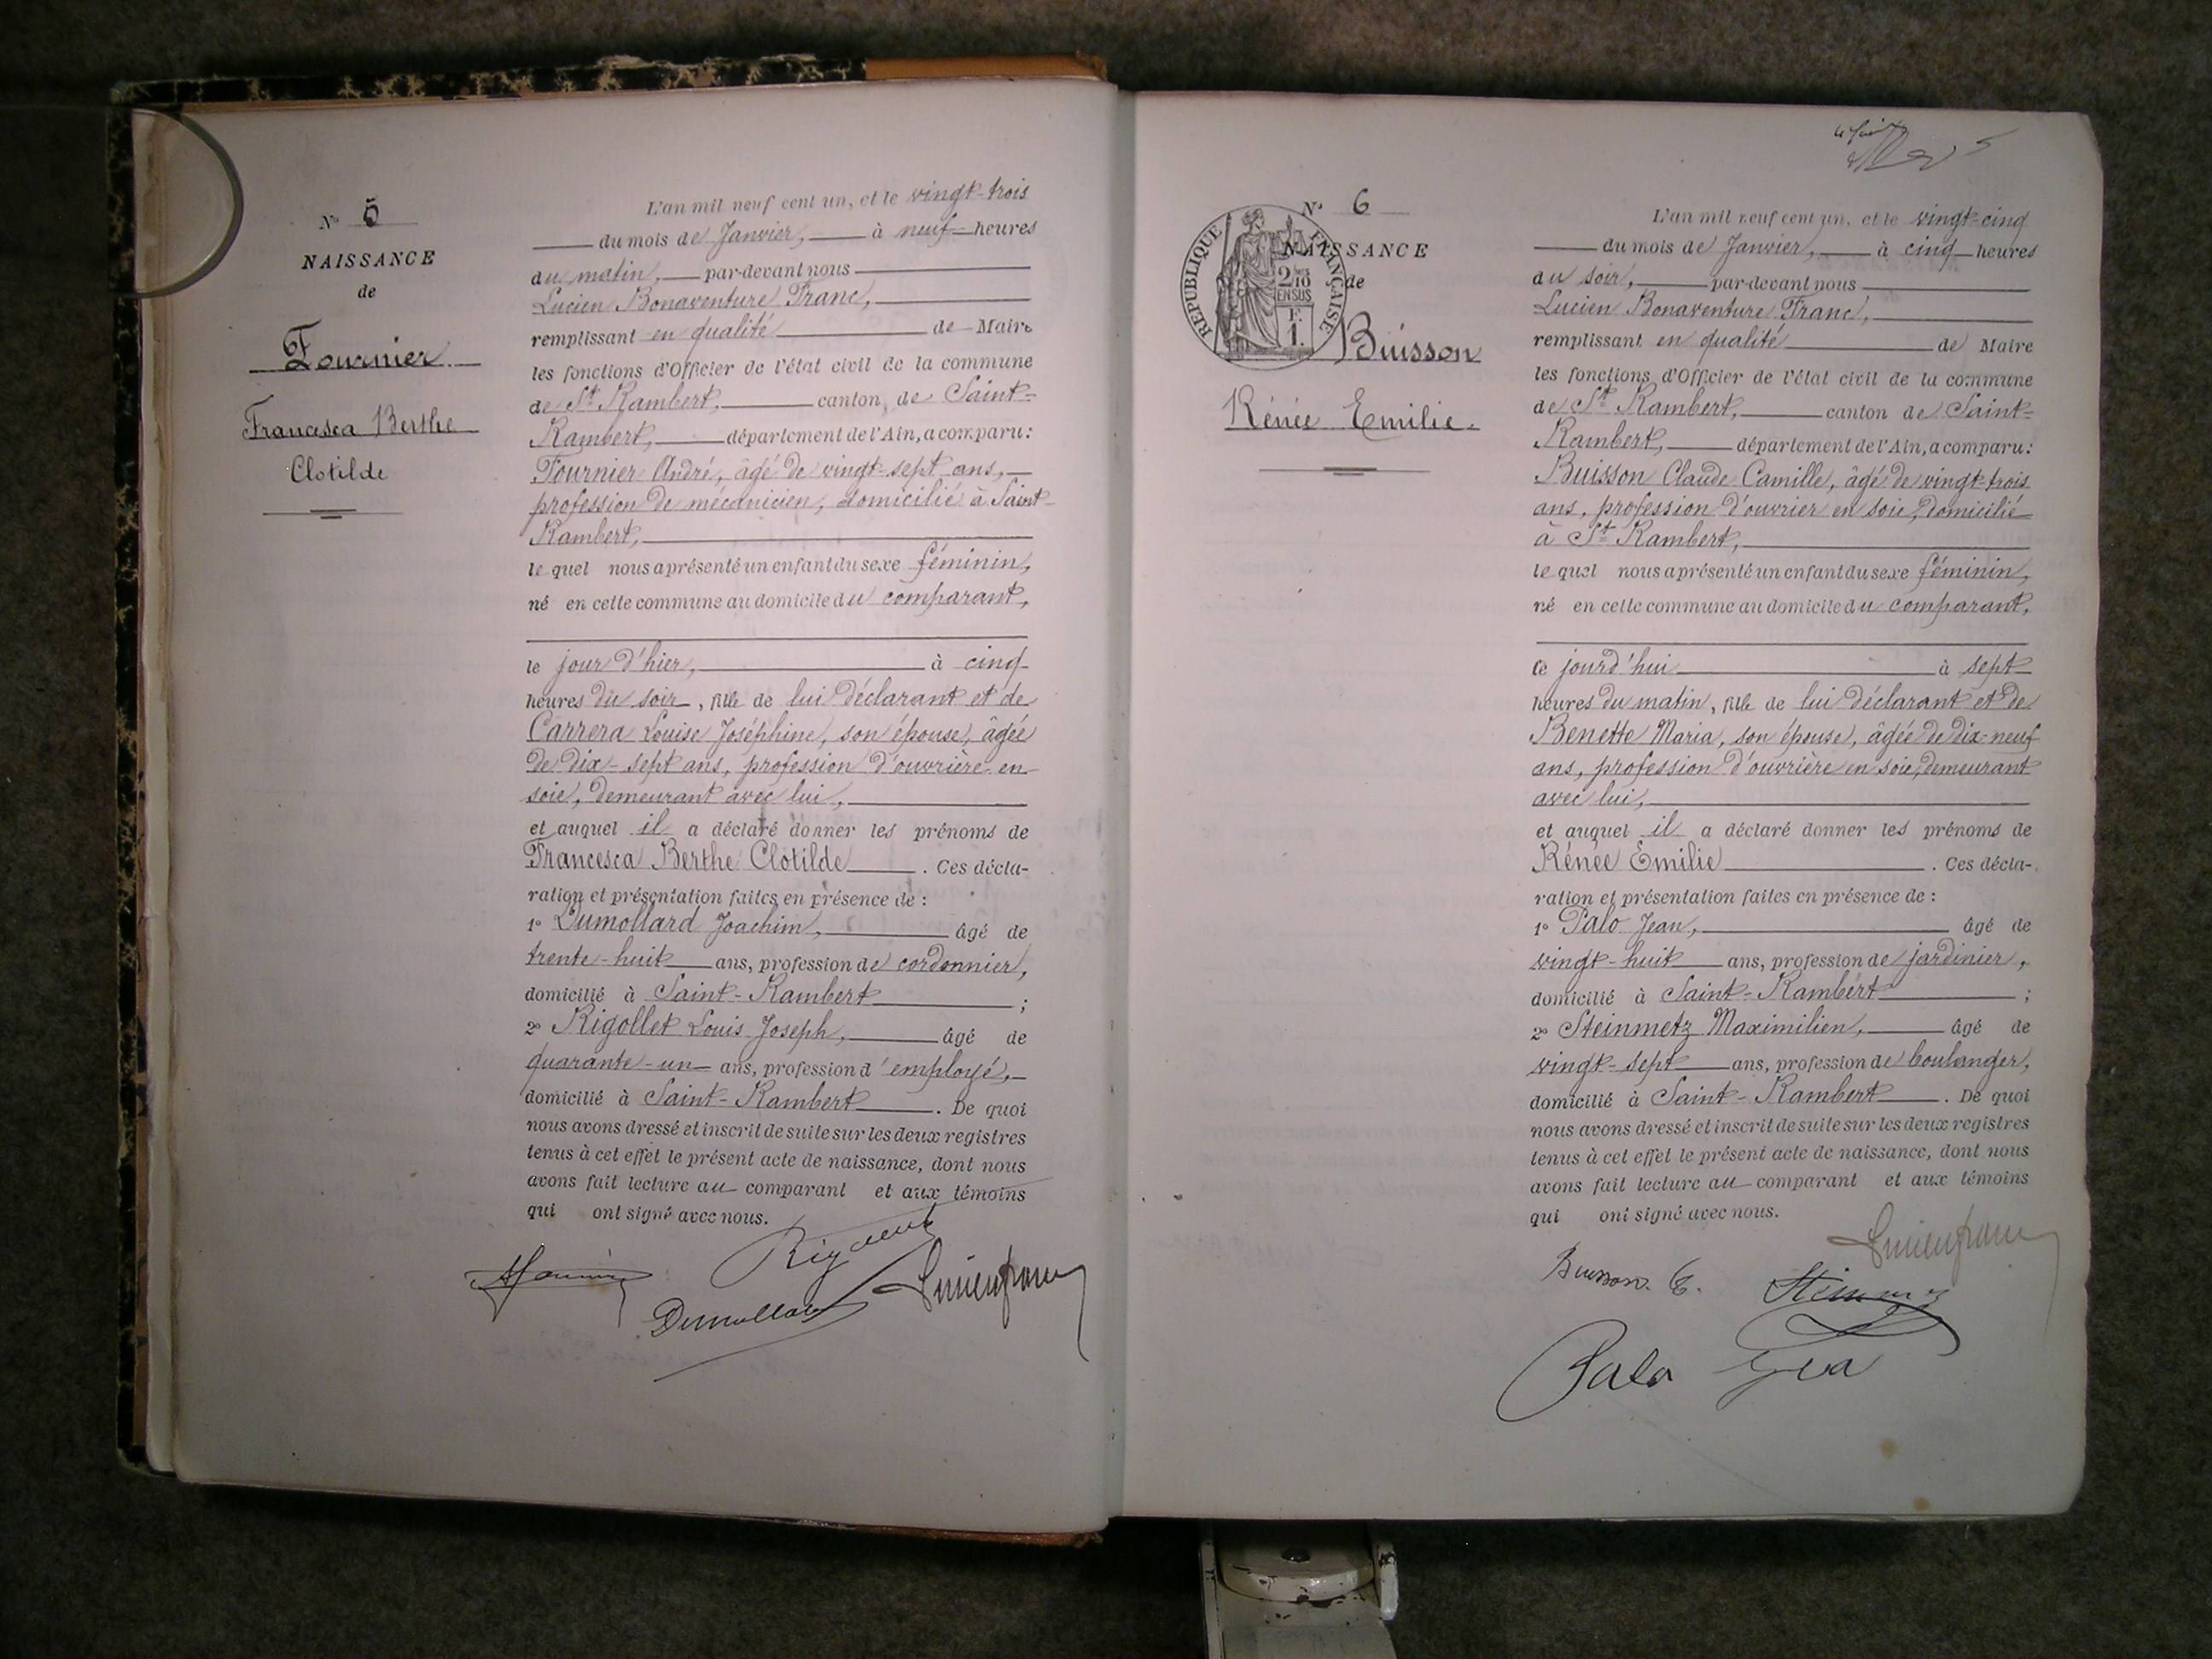 N° 5
NAISSANCE
de
Fournier
Francesca Berthe
Clotilde
L'an mil neuf cent un, et le vingt-trois
du mois de Janvier, à neuf heures
du matin, par-devant nous
Lucien Bonaventure Franc,
remplissant en qualité de Maire
les fonctions d'Officier de l'état civil de la commune
de St Rambert, canton de Saint-
Rambert, département de l'Ain, a comparu :
Fournier André, âgé de vingt-sept ans,
profession de mécanicien, domicilié à Saint-
Rambert,
le quel nous a présenté un enfant du sexe féminin,
né en cette commune au domicile du comparant,
le jour d'hier, à cinq
heures du soir, fille de lui déclarant et de
Carrera Louise Joséphine, son épouse, âgée
de dix-sept ans, profession d'ouvrière en
soie, demeurant avec lui,
et auquel il a déclaré donner les prénoms de
Francesca Berthe Clotilde. Ces décla-
ration et présentation faites en présence de :
1° Dumollard Joachim, âgé de
trente-huit ans, profession de cordonnier,
domicilié à Saint-Rambert ;
2° Rigollet Louis Joseph, âgé de
quarante-un ans, profession d'employé,
domicilié à Saint-Rambert. De quoi
nous avons dressé et inscrit de suite sur les deux registres
tenus à cet effet le présent acte de naissance, dont nous
avons fait lecture au comparant et aux témoins
qui ont signé avec nous.
Dumollard
N° 6
NAISSANCE
de
RÉPUBLIQUE FRANÇAISE
2/10
EN SUS
F.
1.
Buisson
Rénée Emilie.
L'an mil neuf cent un, et le vingt-cinq
du mois de Janvier, à cinq heures
du soir, par-devant nous
Lucien Bonaventure Franc,
remplissant en qualité de Maire
les fonctions d'Officier de l'état civil de la commune
de St Rambert, canton de Saint-
Rambert, département de l'Ain, a comparu :
Buisson Claude Camille, âgé de vingt-trois
ans, profession d'ouvrier en soie, domicilié
à St Rambert,
le quel nous a présenté un enfant du sexe féminin,
né en cette commune au domicile du comparant,
ce jourd'hui à sept
heures du matin, fille de lui déclarant et de
Benette Maria, son épouse, âgée de dix-neuf
ans, profession d'ouvrière en soie, demeurant
avec lui,
et auquel il a déclaré donner les prénoms de
Rénée Emilie. Ces décla-
ration et présentation faites en présence de :
1° Palo Jean, âgé de
vingt-huit ans, profession de jardinier,
domicilié à Saint-Rambert ;
2° Steinmetz Maximilien, âgé de
vingt-sept ans, profession de boulanger,
domicilié à Saint-Rambert. De quoi
nous avons dressé et inscrit de suite sur les deux registres
tenus à cet effet le présent acte de naissance, dont nous
avons fait lecture au comparant et aux témoins
qui ont signé avec nous.
Buisson. C.